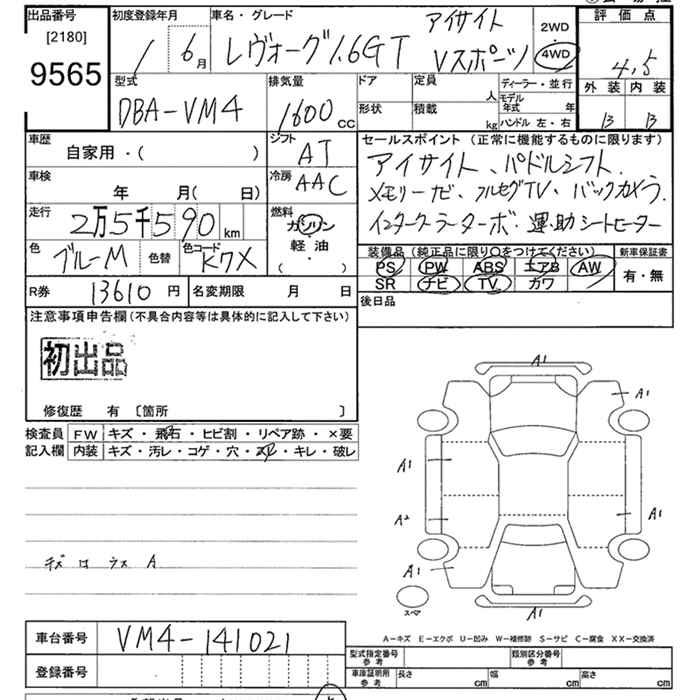 出品番号
[2180]
9565
初度登録年月
/ 6月
車名・グレード
レヴォーグ1.6GT アイサイト Vスポーツ
2WD
4WD
評価点
4.5
外装 内装
B B
型式
DBA-VM4
排気量
1600cc
ドア
定員
人
形状
積載
kg
ディーラー・並行
モデル年式 年
ハンドル 左・右
車歴
自家用・( )
シフト
AT
セールスポイント (正常に機能するものに限ります)
アイサイト、パドルシフト、
メモリーナビ、フルセグTV、バックカメラ、
インタークーラーターボ・運・助シートヒーター
車検
年 月( 日)
冷房
AAC
走行
2万5千590km
燃料
ガソリン
・
軽油
( )
色
ブルーM
色替
色コード
K7X
装備品 (純正品に限り○をつけてください)
PS PW ABS エアB AW
SR ナビ TV カワ
新車保証書
有・無
R券
13610円
名変期限 月 日
後日品
注意事項申告欄(不具合内容等は具体的に記入して下さい)
初出品
修復歴 有 [箇所 ]
検査員
記入欄
FW キズ・飛石・ヒビ割・リペア跡・×要
内装 キズ・汚レ・コゲ・穴・スレ・キレ・破レ
A1
A1
A1
A1
A2
A1
A1
A1
スペア
A-キズ E-エクボ U-凹み W-補修跡 S-サビ C-腐食 XX-交換済
車台番号
VM4-141021
登録番号
型式指定番号
参考
類別区分番号
参考
車庫証明用
参考
長さ cm
幅 cm
高さ cm